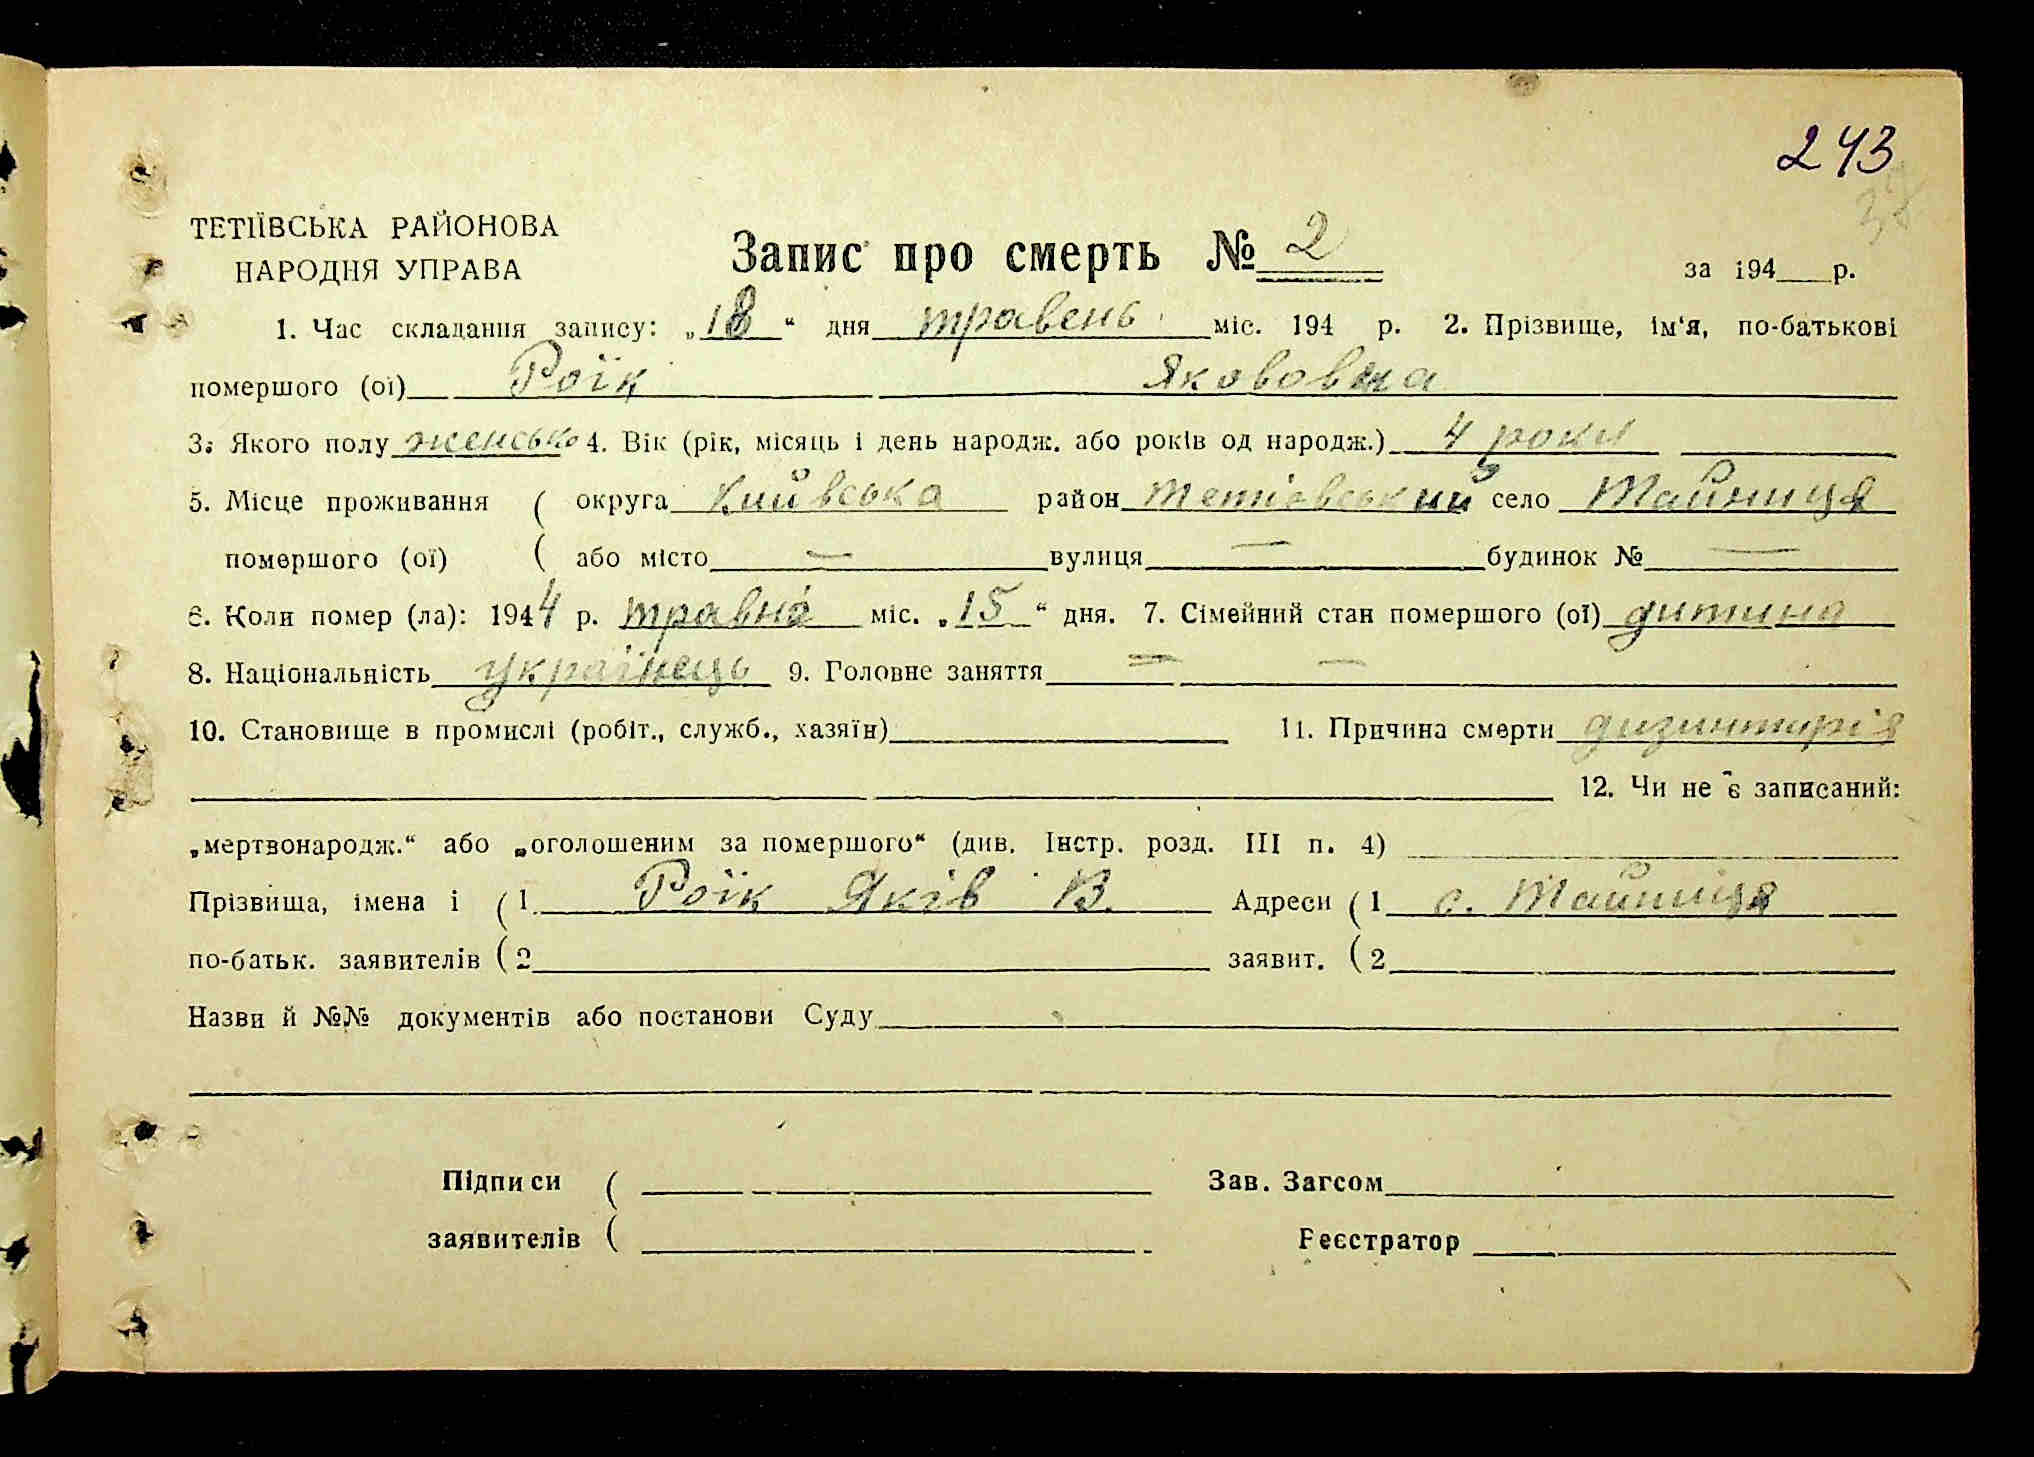 243
38
ТЕТІЇВСЬКА РАЙОНОВА
НАРОДНЯ УПРАВА
Запис про смерть № 2
за 194 р.
1. Час складання запису: „18“ дня травень міс. 194 р. 2. Прізвище, ім'я, по-батькові
помершого (ої) Роїк Якововна
3. Якого полу женсько 4. Вік (рік, місяць і день народж. або років од народж.) 4 роки
5. Місце проживання ( округа Київська район Тетіовський село Тайниця
помершого (ої) ( або місто — вулиця — будинок № —
6. Коли помер (ла): 1944 р. травня міс. „15“ дня. 7. Сімейний стан помершого (ої) дитина
8. Національність українець 9. Головне заняття = —
10. Становище в промислі (робіт., служб., хазяїн) 11. Причина смерти дизинтирія
12. Чи не є записаний:
„мертвонародж.“ або „оголошеним за помершого“ (див. Інстр. розд. III п. 4)
Прізвища, імена і ( 1 Роїк Яків В. Адреси ( 1 с. Тайниця
по-батьк. заявителів ( 2 заявит. ( 2
Назви й №№ документів або постанови Суду
Підписи ( Зав. Загсом
заявителів ( Реєстратор